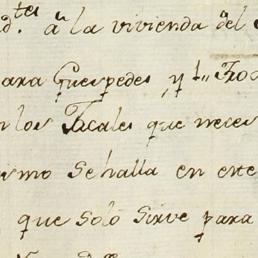 d.tes a la vivienda del
para Guespedes, y
los Jacales que neces
mismo se halla en este
que solo sirve para